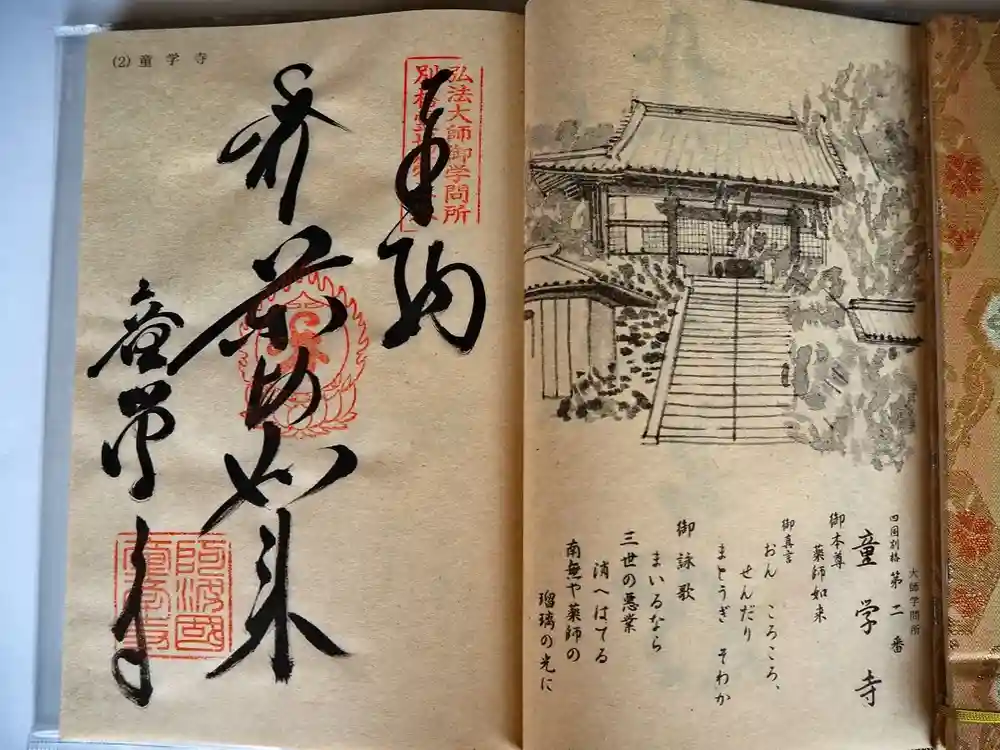 大師学問所
四国別格 第二番
童学寺
御本尊
薬師如来
御真言
おん ころころ、
せんだり
まとうぎ そわか
御詠歌
まいるなら
三世の悪業
消へはてる
南無や薬師の
瑠璃の光に
(2) 童学寺
弘法大師御学問所
別格
奉納
薬師如来
童学寺
阿波國
童学寺